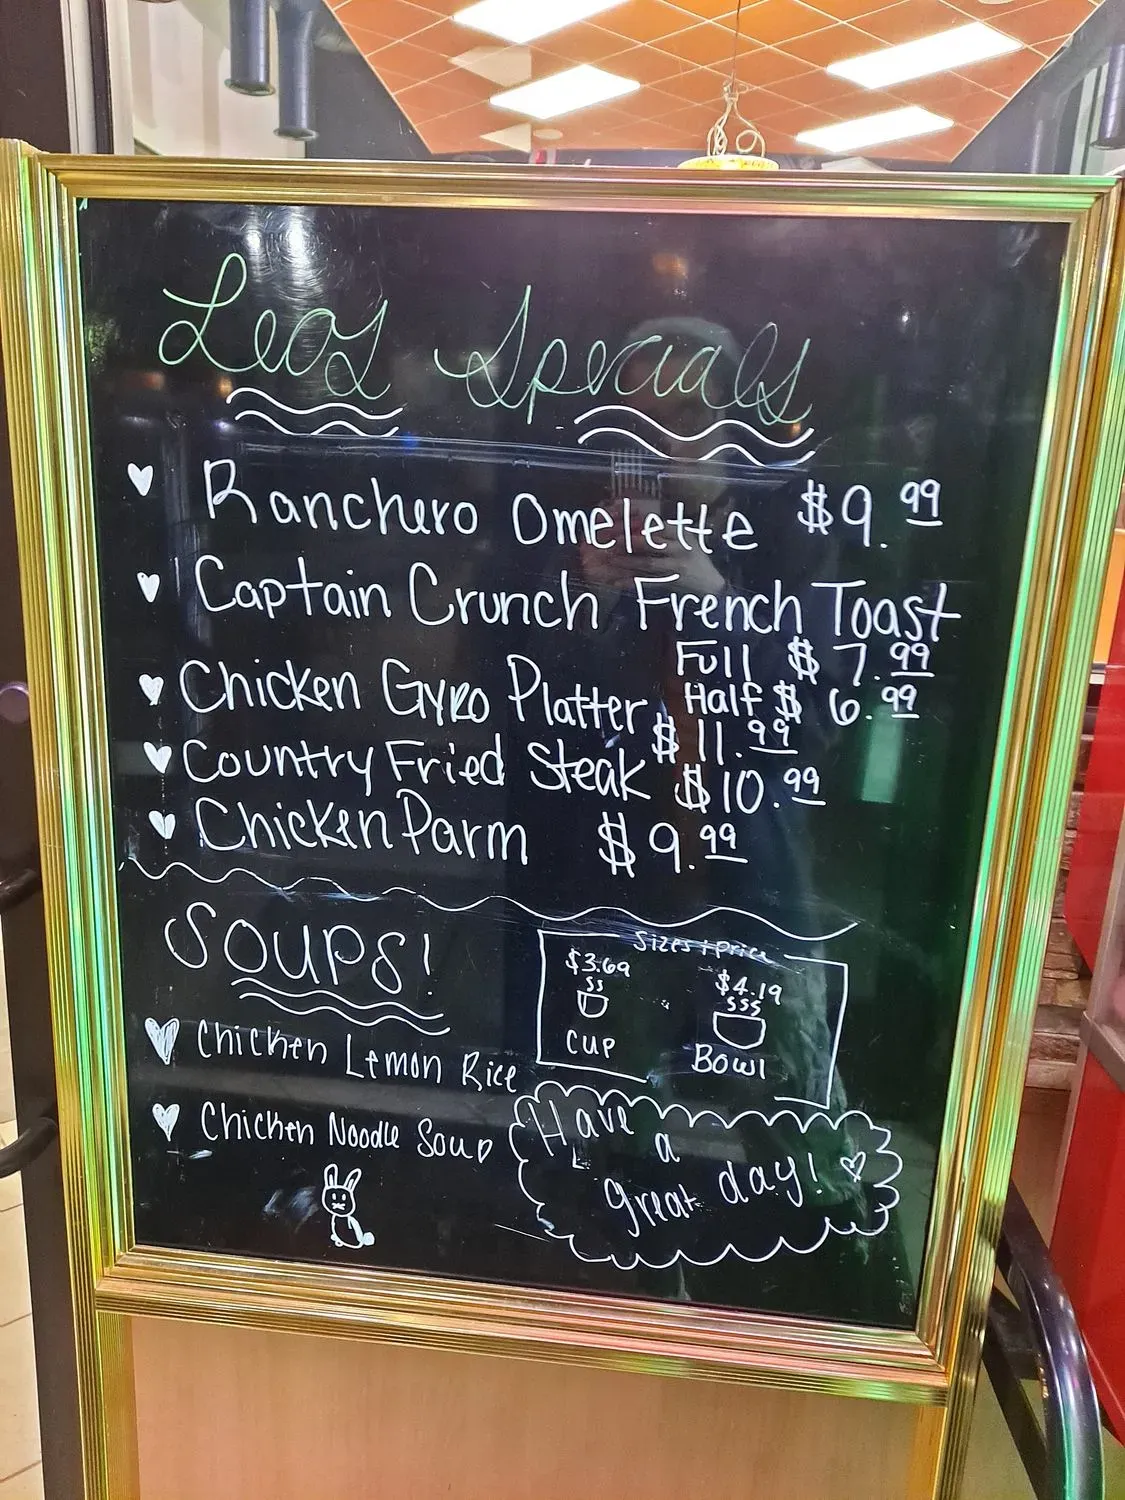 Leos Specials
Ranchero Omelette $9.99
Captain Crunch French Toast
Full $7.99
Half $6.99
Chicken Gyro Platter $11.99
Country Fried Steak $10.99
Chicken Parm $9.99
SOUPS!
Sizes + Price
$3.69 $4.19
CUP Bowl
Chicken Lemon Rice
Chicken Noodle Soup
Have
a
great day!